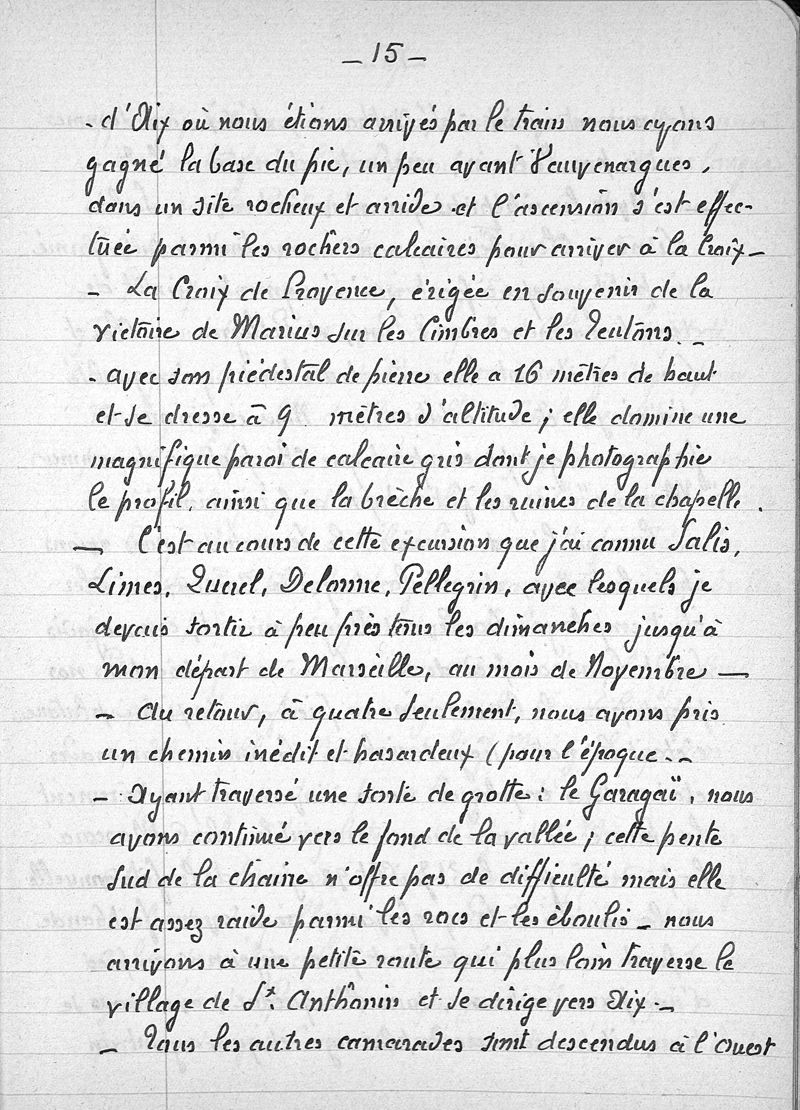 – 15 –
- d'Aix où nous étions arrivés par le train nous avons
gagné la base du pic, un peu avant Vauvenargues,
dans un site rocheux et aride et l'ascension s'est effec-
tuée parmi les rochers calcaires pour arriver à la Croix –
– La Croix de Provence, érigée en souvenir de la
victoire de Marius sur les Cimbres et les Teutons. –
- avec son piédestal de pierre elle a 16 mètres de haut
et se dresse à 9 mètres d'altitude ; elle domine une
magnifique paroi de calcaire gris dont je photographie
le profil, ainsi que la brèche et les ruines de la chapelle.
— C'est au cours de cette excursion que j'ai connu Salis,
Limes, Queirel, Delorme, Pellegrin, avec lesquels je
devais sortir à peu près tous les dimanches jusqu'à
mon départ de Marseille, au mois de Novembre —
– Au retour, à quatre seulement, nous avons pris
un chemin inédit et hasardeux (pour l'époque. –
– Ayant traversé une sorte de grotte : le Garagaï, nous
avons continué vers le fond de la vallée ; cette pente
sud de la chaine n'offre pas de difficulté mais elle
est assez raide parmi les rocs et les éboulis – nous
arrivons à une petite route qui plus loin traverse le
village de St. Anthonin et se dirige vers Aix. –
– Tous les autres camarades sont descendus à l'Ouest